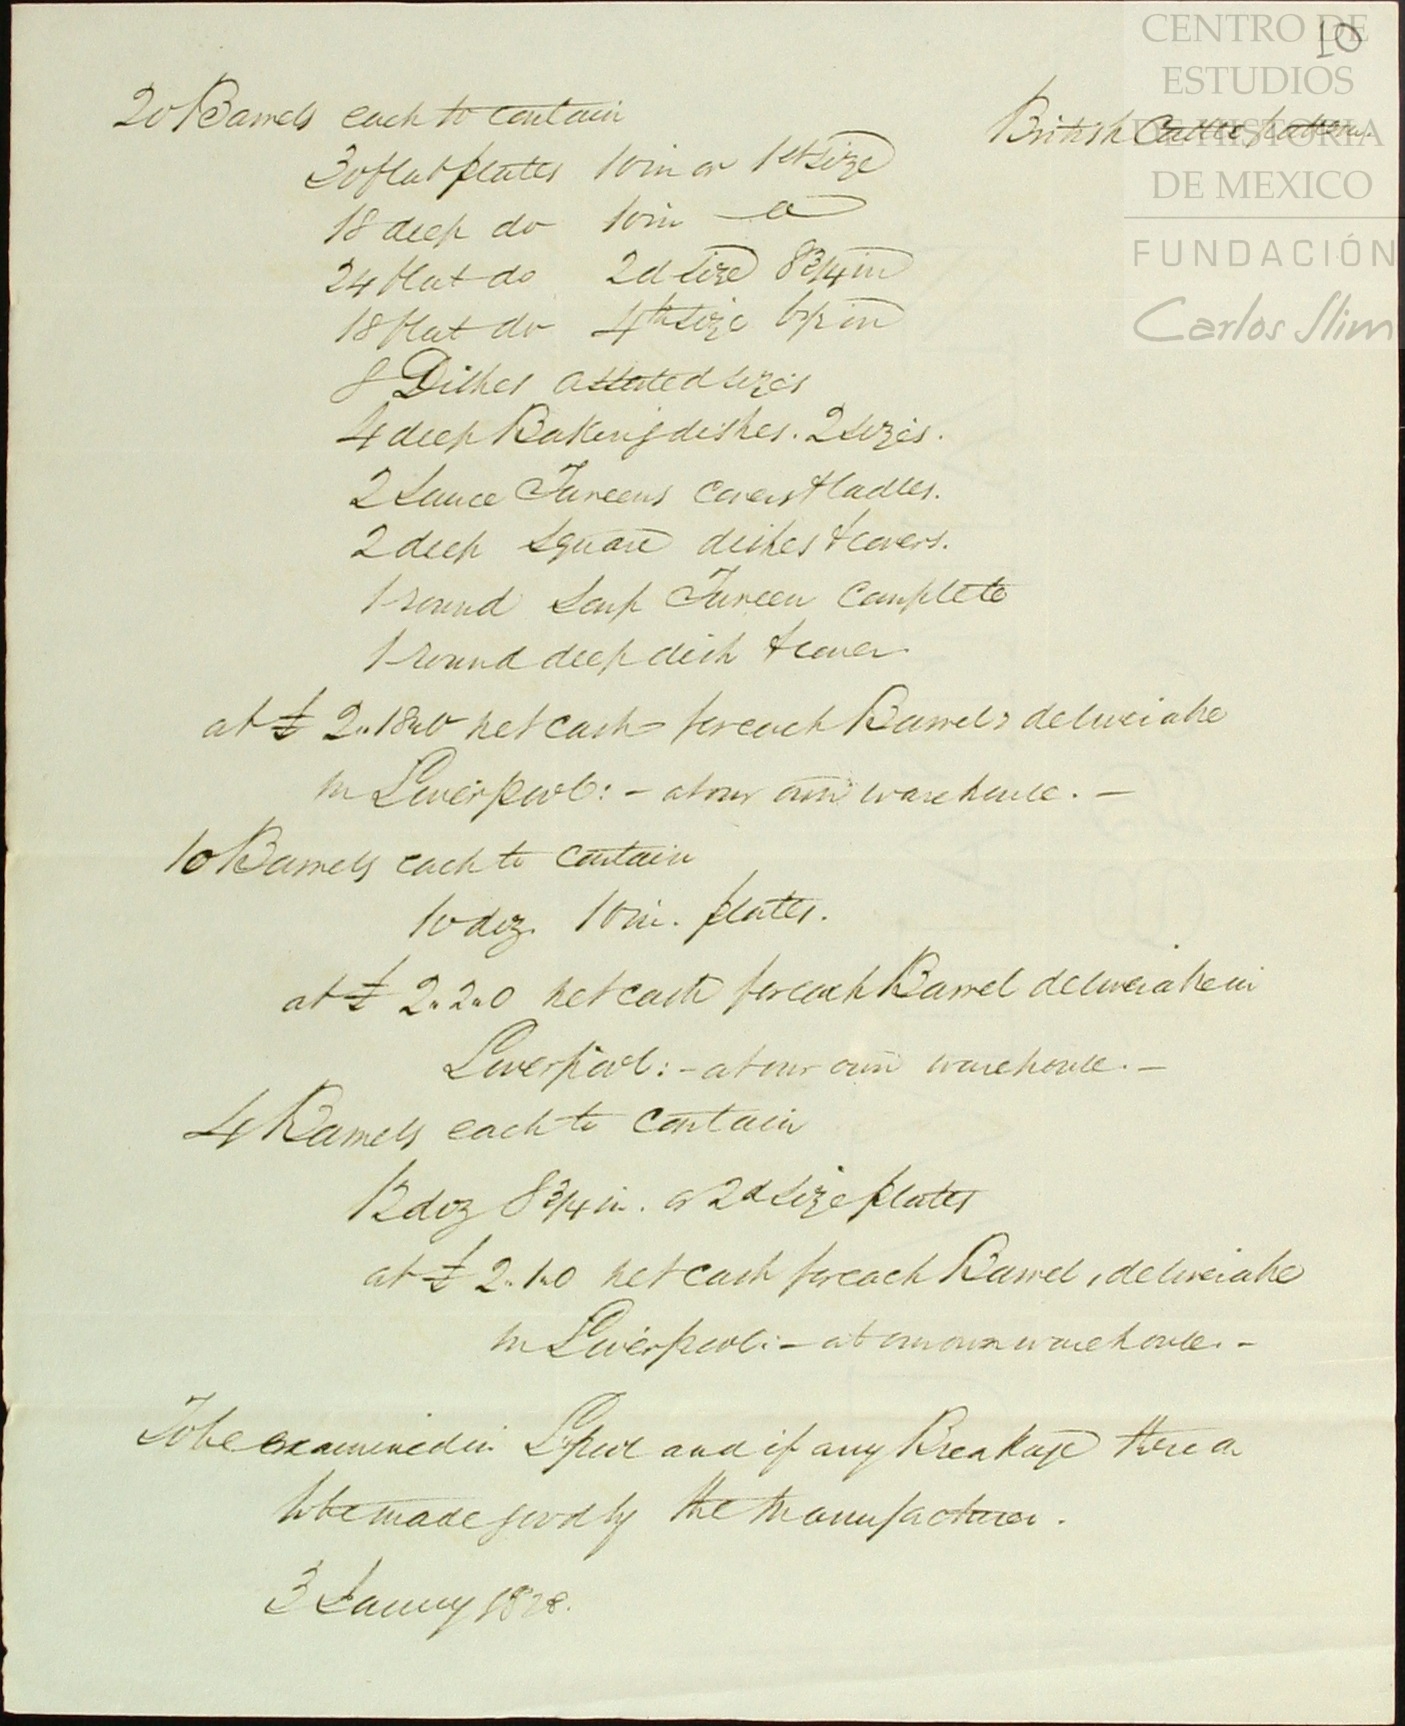 10
CENTRO DE
ESTUDIOS
DE HISTORIA
DE MEXICO
FUNDACIÓN
Carlos Slim
British Cattle pattern.
20 Barrels each to contain
30 flat plates 10in or 1st size
18 deep do 10in
24 flat do 2d size 8 3/4 in
18 flat do 4th size in
8 Dishes assorted sizes
4 deep Baking dishes. 2 sizes.
2 Sauce Tureens covers & ladles.
2 deep Square dishes & covers.
1 round Soup Tureen Complete
1 round deep dish & cover
at £ 2"18"0 net cash for each Barrel, deliverable
in Liverpool: - at our own warehouse. -
10 Barrels each to contain
10 doz. 10 in. plates.
at £ 2"2"0 net cash for each Barrel deliverable in
Liverpool: - at our own warehouse. -
4 Barrels each to contain
12 doz 8 3/4 in. or 2d size plates
at £ 2"1"0 net cash for each Barrel, deliverable
in Liverpool: - at our own warehouse. -
To be examined in L'pool and if any Breakage there
to be made good by the Manufacturer.
3 January 1828.